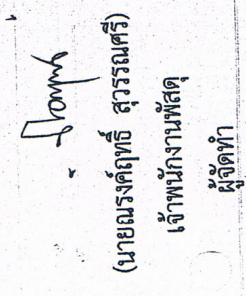 (นายณรงค์ฤทธิ์ สุวรรณศรี)
เจ้าพนักงานพัสดุ
ผู้จัดทำ